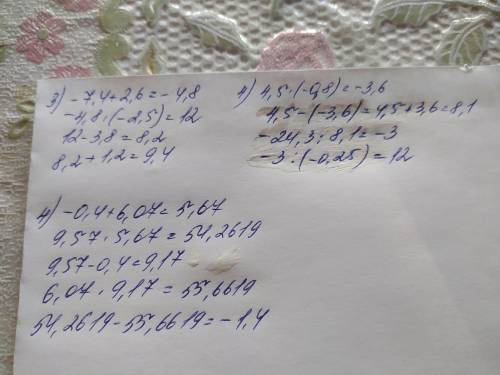 3) -7,4+2,6=-4,8
-4,8·(-2,5)=12
12-3,8=8,2
8,2+1,2=9,4
4) 4,5·(-0,8)=-3,6
4,5-(-3,6)=4,5+3,6=8,1
-24,3:8,1=-3
-3:(-0,25)=12
4) -0,4+6,07=5,67
9,57·5,67=54,2619
9,57-0,4=9,17
6,07·9,17=55,6619
54,2619-55,6619=-1,4